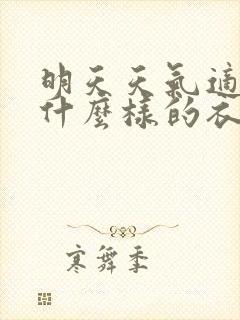 明天天氣適
什麼樣的衣
寒舞季